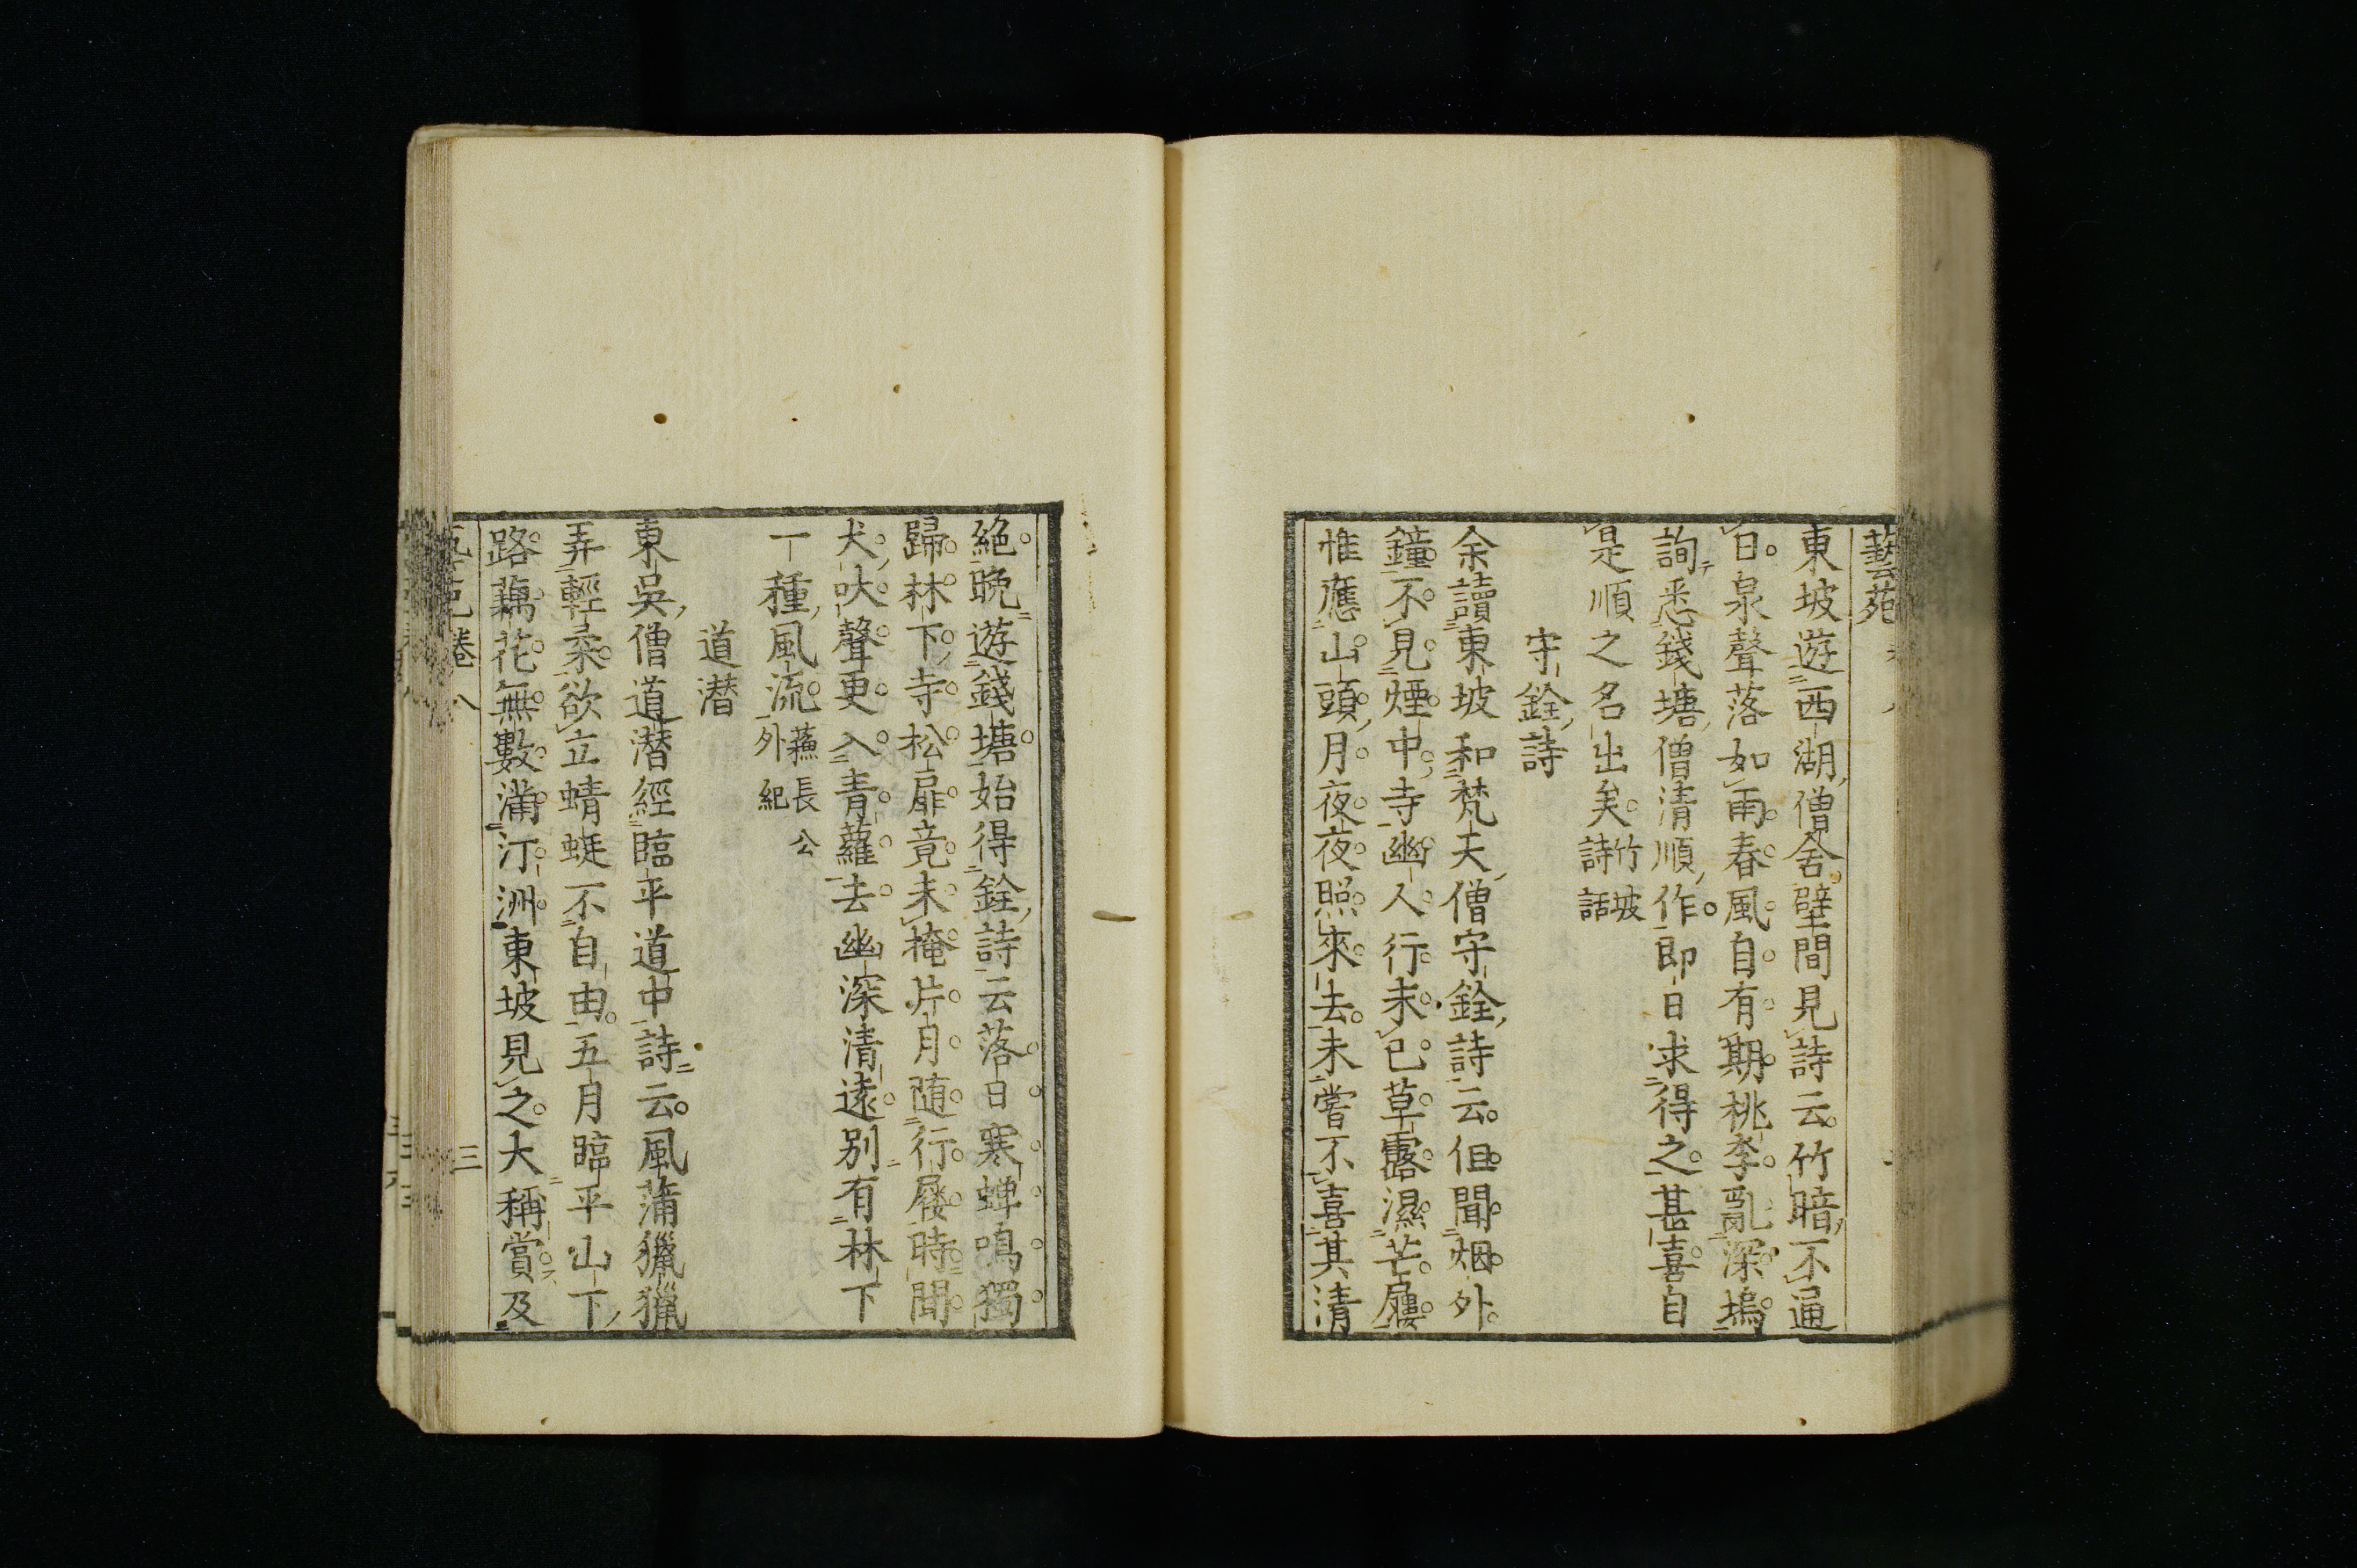 藝苑
東坡遊西湖僧舍壁間見詩云竹暗不通
日泉聲落如雨春風自有期桃李亂深塢
詢悉錢塘僧清順作即日求得之甚喜自
是順之名出矣竹坡詩話
守銓詩
余讀東坡和梵天僧守銓詩云但聞烟外
鐘不見煙中寺幽人行未已草露濕芒屨
惟應山頭月夜夜照來去未嘗不喜其清
絶晚遊錢塘始得銓詩云落日寒蟬鳴獨
歸林下寺松扉竟未掩片月随行屦時聞
犬吠聲更入青蘿去幽深清遠別有林下
一種風流蘓長公外紀
道潜
東吳僧道潜經臨平道中詩云風蒲獵獵
弄輕柔欲立蜻蜓不自由五月臨平山下
路藕花無數滿汀洲東坡見之大稱賞及
卷八
三